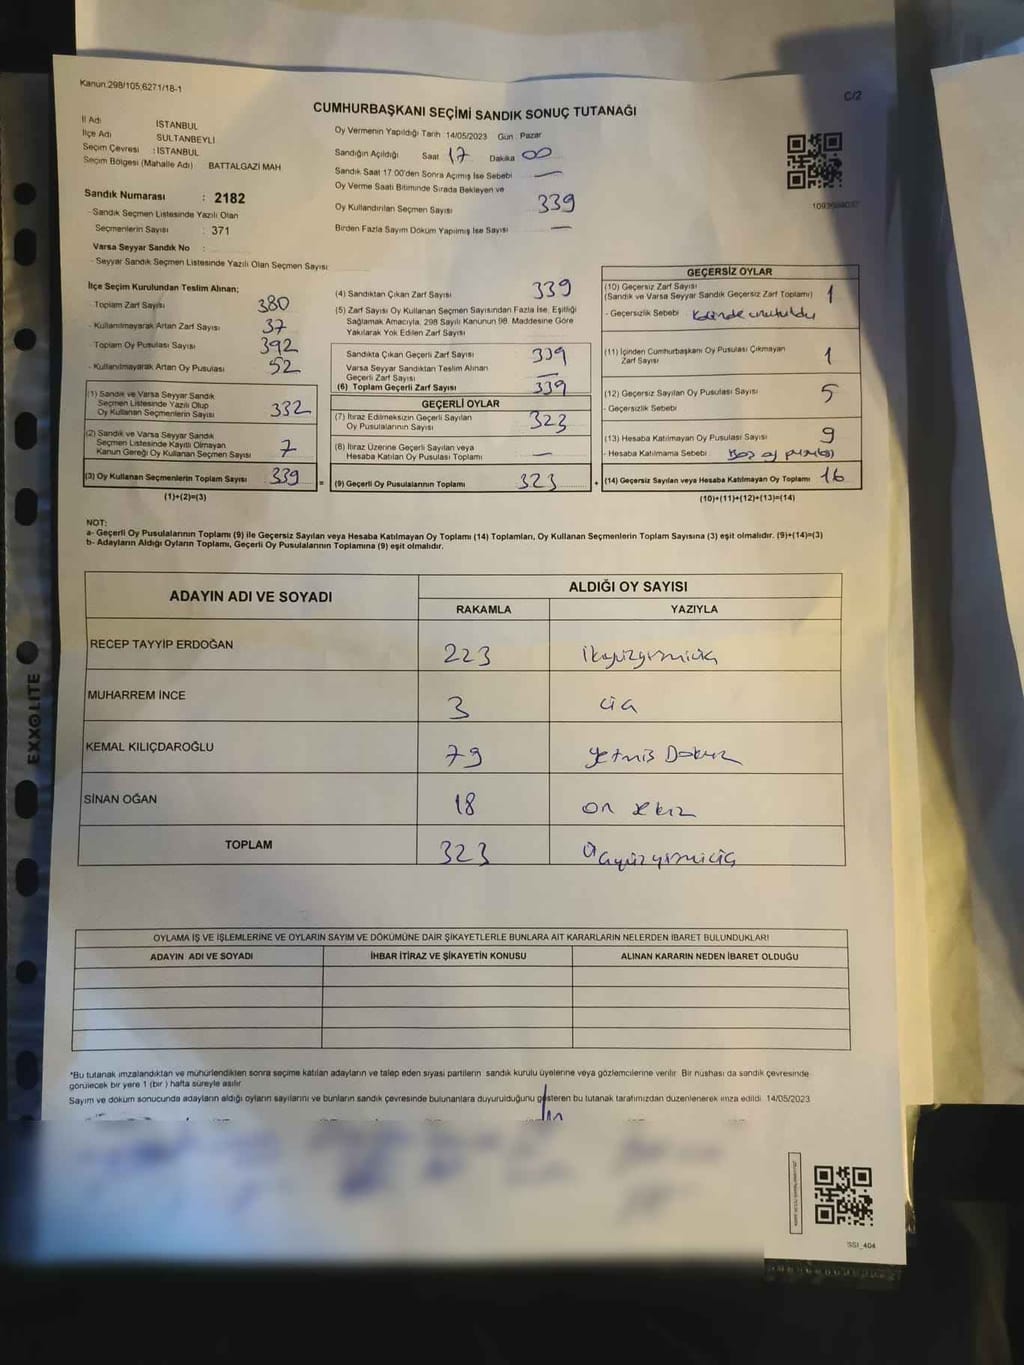 Kanun.298/105;6271/18-1
C/2
CUMHURBAŞKANI SEÇİMİ SANDIK SONUÇ TUTANAĞI
İl Adı İSTANBUL
İlçe Adı SULTANBEYLİ
Seçim Çevresi : İSTANBUL
Seçim Bölgesi (Mahalle Adı) BATTALGAZİ MAH
Sandık Numarası : 2182
- Sandık Seçmen Listesinde Yazılı Olan
Seçmenlerin Sayısı : 371
Varsa Seyyar Sandık No :
- Seyyar Sandık Seçmen Listesinde Yazılı Olan Seçmen Sayısı:
Oy Vermenin Yapıldığı Tarih :14/05/2023 Gün : Pazar
Sandığın Açıldığı Saat 17 Dakika 00
Sandık Saat 17.00'den Sonra Açımış İse Sebebi —
Oy Verme Saati Bitiminde Sırada Bekleyen ve
Oy Kullandırılan Seçmen Sayısı 339
Birden Fazla Sayım Döküm Yapılmış İse Sayısı —
İlçe Seçim Kurulundan Teslim Alınan;
- Toplam Zarf Sayısı 380
- Kullanılmayarak Artan Zarf Sayısı 37
- Toplam Oy Pusulası Sayısı 392
- Kullanılmayarak Artan Oy Pusulası 52
(1) Sandık ve Varsa Seyyar Sandık
Seçmen Listesinde Yazılı Olup
Oy Kullanan Seçmenlerin Sayısı 332
(2) Sandık ve Varsa Seyyar Sandık
Seçmen Listesinde Kayıtlı Olmayan
Kanun Gereği Oy Kullanan Seçmen Sayısı 7
(3) Oy Kullanan Seçmenlerin Toplam Sayısı 339
(1)+(2)=(3)
(4) Sandıktan Çıkan Zarf Sayısı 339
(5) Zarf Sayısı Oy Kullanan Seçmen Sayısından Fazla İse, Eşitliği
Sağlamak Amacıyla, 298 Sayılı Kanunun 98. Maddesine Göre
Yakılarak Yok Edilen Zarf Sayısı
Sandıkta Çıkan Geçerli Zarf Sayısı 339
Varsa Seyyar Sandıktan Teslim Alınan
Geçerli Zarf Sayısı —
(6) Toplam Geçerli Zarf Sayısı 339
GEÇERLİ OYLAR
(7) İtiraz Edilmeksizin Geçerli Sayılan
Oy Pusulalarının Sayısı 323
(8) İtiraz Üzerine Geçerli Sayılan veya
Hesaba Katılan Oy Pusulası Toplamı —
= (9) Geçerli Oy Pusulalarının Toplamı 323 +
GEÇERSİZ OYLAR
(10) Geçersiz Zarf Sayısı
(Sandık ve Varsa Seyyar Sandık Geçersiz Zarf Toplamı) 1
- Geçersizlik Sebebi unutuldu
(11) İçinden Cumhurbaşkanı Oy Pusulası Çıkmayan
Zarf Sayısı 1
(12) Geçersiz Sayılan Oy Pusulası Sayısı 5
- Geçersizlik Sebebi
(13) Hesaba Katılmayan Oy Pusulası Sayısı 9
- Hesaba Katılmama Sebebi Boş oy pusulası
(14) Geçersiz Sayılan veya Hesaba Katılmayan Oy Toplamı 16
(10)+(11)+(12)+(13)=(14)
NOT:
a- Geçerli Oy Pusulalarının Toplamı (9) ile Geçersiz Sayılan veya Hesaba Katılmayan Oy Toplamı (14) Toplamları, Oy Kullanan Seçmenlerin Toplam Sayısına (3) eşit olmalıdır. (9)+(14)=(3)
b- Adayların Aldığı Oyların Toplamı, Geçerli Oy Pusulalarının Toplamına (9) eşit olmalıdır.
ADAYIN ADI VE SOYADI
ALDIĞI OY SAYISI
RAKAMLA YAZIYLA
RECEP TAYYİP ERDOĞAN 223 ikiyüzyirmiüç
MUHARREM İNCE 3 üç
KEMAL KILIÇDAROĞLU 79 yetmiş Dokuz
SİNAN OĞAN 18 on sekiz
TOPLAM 323 üçyüzyirmiüç
OYLAMA İŞ VE İŞLEMLERİNE VE OYLARIN SAYIM VE DÖKÜMÜNE DAİR ŞİKAYETLERLE BUNLARA AİT KARARLARIN NELERDEN İBARET BULUNDUKLARI
ADAYIN ADI VE SOYADI İHBAR İTİRAZ VE ŞİKAYETİN KONUSU ALINAN KARARIN NEDEN İBARET OLDUĞU
*Bu tutanak imzalandıktan ve mühürlendikten sonra seçime katılan adayların ve talep eden siyasi partilerin sandık kurulu üyelerine veya gözlemcilerine verilir. Bir nüshası da sandık çevresinde
görülecek bir yere 1 (bir ) hafta süreyle asılır.
Sayım ve döküm sonucunda adayların aldığı oyların sayılarını ve bunların sandık çevresinde bulunanlara duyurulduğunu gösteren bu tutanak tarafımızdan düzenlenerek imza edildi. 14/05/2023
SSI_404
EXXOLITE